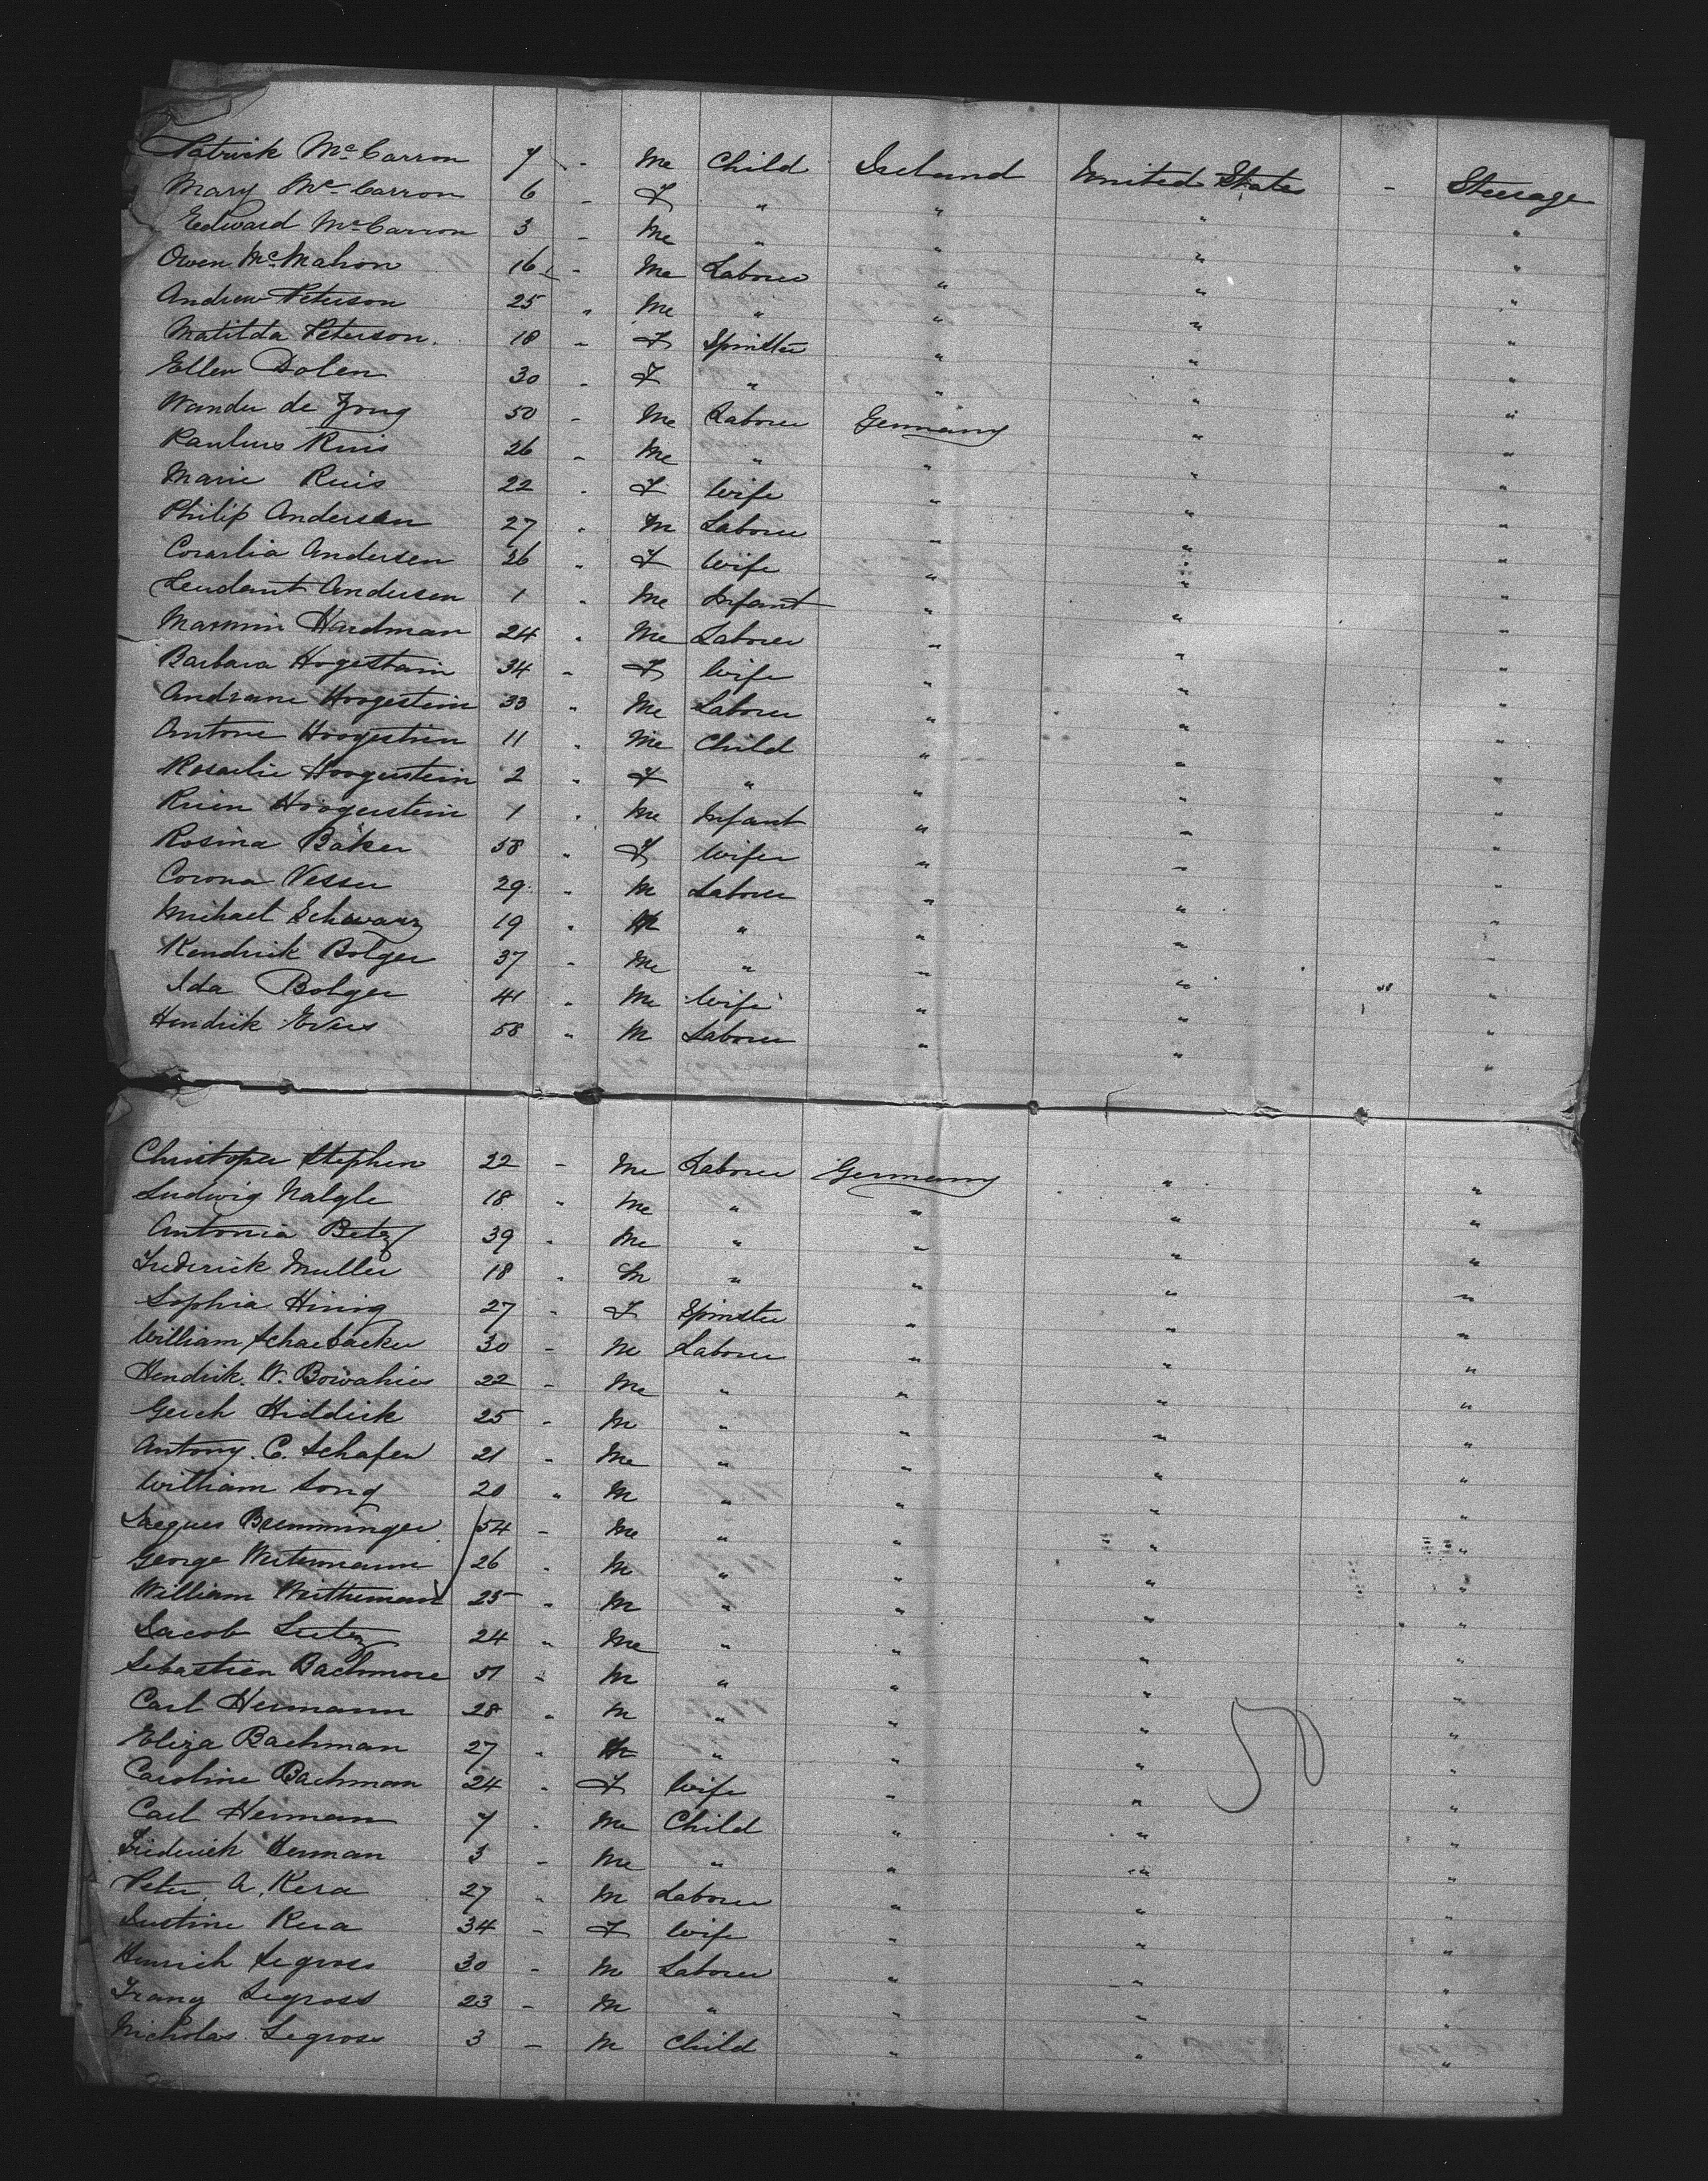 Patrick McCarron 7 - M Child Ireland United States - Steerage
Mary McCarron 6 - F " " " "
Edward McCarron 3 - M " " " "
Owen McMahon 16 - M Laborer " " "
Andrew Peterson 25 " M " " " "
Matilda Peterson 18 - F Spinster " " "
Ellen Dolen 30 - F " " " "
Wander de Jong 50 - M Laborer Germany " "
Paulius Ruis 26 - M " " " "
Marie Ruis 22 - F Wife " " "
Philip Andersen 27 " M Laborer " " "
Corarlia Andersen 26 " F Wife " " "
Leudant Andersen 1 " M Infant " " "
Hardman 24 " M Laborer " " "
Barbara Hogestain 34 - F Wife " " "
Andriane Hoogestein 33 " M Laborer " " "
Antone Hoogestein 11 " M Child " " "
Rosaelie Hoogerstein 2 " F " " " "
Rein Hoogerstein 1 " M Infant " " "
Rosina Baker 58 " F Wife " " "
Corona Vesser 29 " M Laborer " " "
Michael Schwarz 19 " M " " " "
Kendrick Bolger 37 - M " " " "
Ida Bolger 41 " M Wife " " "
Hendrik Evers 58 " M Laborer " " "
Christoper Stephen 22 - M Laborer Germany " "
Ludwig Nalgle 18 " M " " " "
Antonia Betz 39 " M " " " "
Frederick Muller 18 " M " " " "
Sophia Hinig 27 - F Spinster " " "
William Schaebacker 30 - M Laborer " " "
Hendrik. W. 22 - M " " " "
Gerch Hiddick 25 - M " " " "
Antony. C. Schafer 21 " M " " " "
William Long 20 " M " " " "
Jacques Bremminger 54 - M " " " "
George Weitermann 26 " M " " " "
William Weitheman 25 " M " " " "
Jacob Lutz 24 " M " " " "
Sebastien Bachmore 51 - M " " " "
Carl Hermann 28 " M " " " "
Eliza Bachman 27 " M " " " "
Caroline Bachman 24 " F Wife " " "
Carl Herman 7 " M Child " " "
Frederick Herman 3 - M " " " "
Peter. A. Kera 27 " M Laborer " " "
Justine Kera 34 - F Wife " " "
Henrich Legross 30 - M Laborer " " "
Franz Legross 23 - M " " " "
Nicholas Legross 3 - M Child " " "